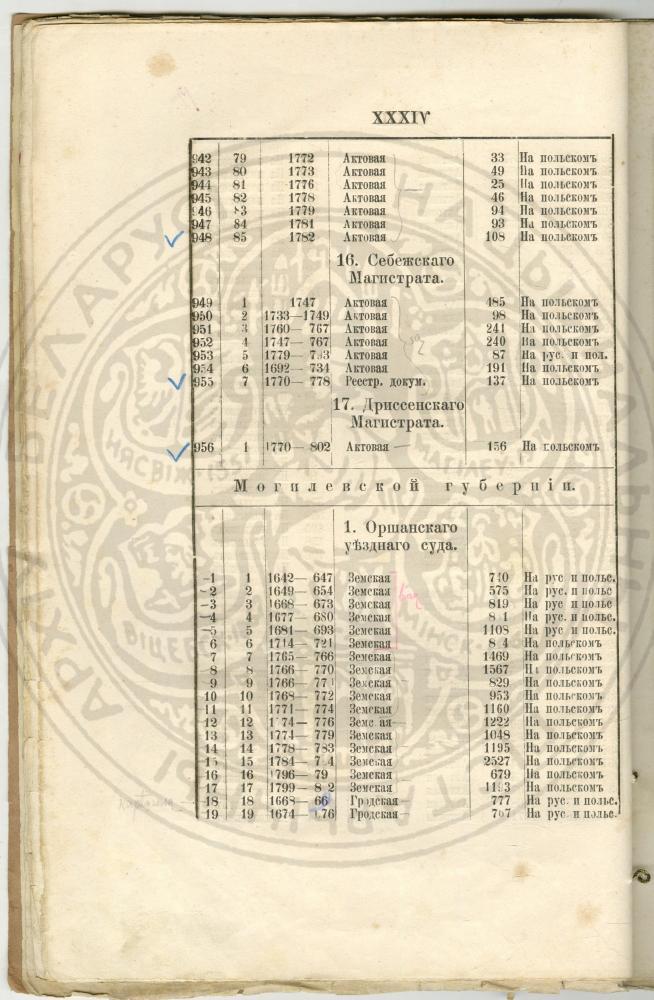 XXXIV
942 79 1772 Актовая 33 На польскомъ
943 80 1773 Актовая 49 На польскомъ
944 81 1776 Актовая 25 На польскомъ
945 82 1778 Актовая 46 На польскомъ
946 83 1779 Актовая 94 На польскомъ
947 84 1781 Актовая 93 На польскомъ
948 85 1782 Актовая 108 На польскомъ
16. Себежскаго
Магистрата.
949 1 1747 Актовая 485 На польскомъ
950 2 1733—1749 Актовая 98 На польскомъ
951 3 1760— 767 Актовая 241 На польскомъ
952 4 1747— 767 Актовая 240 На польскомъ
953 5 1779— Актовая 87 На рус. и пол.
954 6 1692— 734 Актовая 191 На польскомъ
955 7 1770— 778 Реестр. докум. 137 На польскомъ
17. Дриссенскаго
Магистрата.
956 1 1770— 802 Актовая 156 На польскомъ
Могилевской губерніи.
1. Оршанскаго
уѣзднаго суда.
1 1 1642— 647 Земская 740 На рус. и польс.
2 2 1649— 654 Земская 575 На рус. и польс
3 3 1668— 673 Земская 819 На рус и польс
4 4 1677— 680 Земская На рус. и польс.
5 5 1681— 693 Земская 1108 На рус и польс.
6 6 1714— 721 Земская На польскомъ
7 7 1765— 766 Земская 1469 На польскомъ
8 8 1766— 770 Земская 1567 На польскомъ
9 9 1766— Земская 829 На польскомъ
10 10 1768— 772 Земская 953 На польскомъ
11 11 1771— 774 Земская 1160 На польскомъ
12 12 1774— 776 Земская 1222 На польскомъ
13 13 1774— 779 Земская 1048 На польскомъ
14 14 1778— 783 Земская 1195 На польскомъ
15 15 1784— Земская 2527 На польскомъ
16 16 1796— Земская 679 На польскомъ
17 17 1799— Земская На польскомъ
18 18 1668— 66 Гродская 777 На рус. и польс.
19 19 1674— 676 Гродская 767 На рус. и польс.